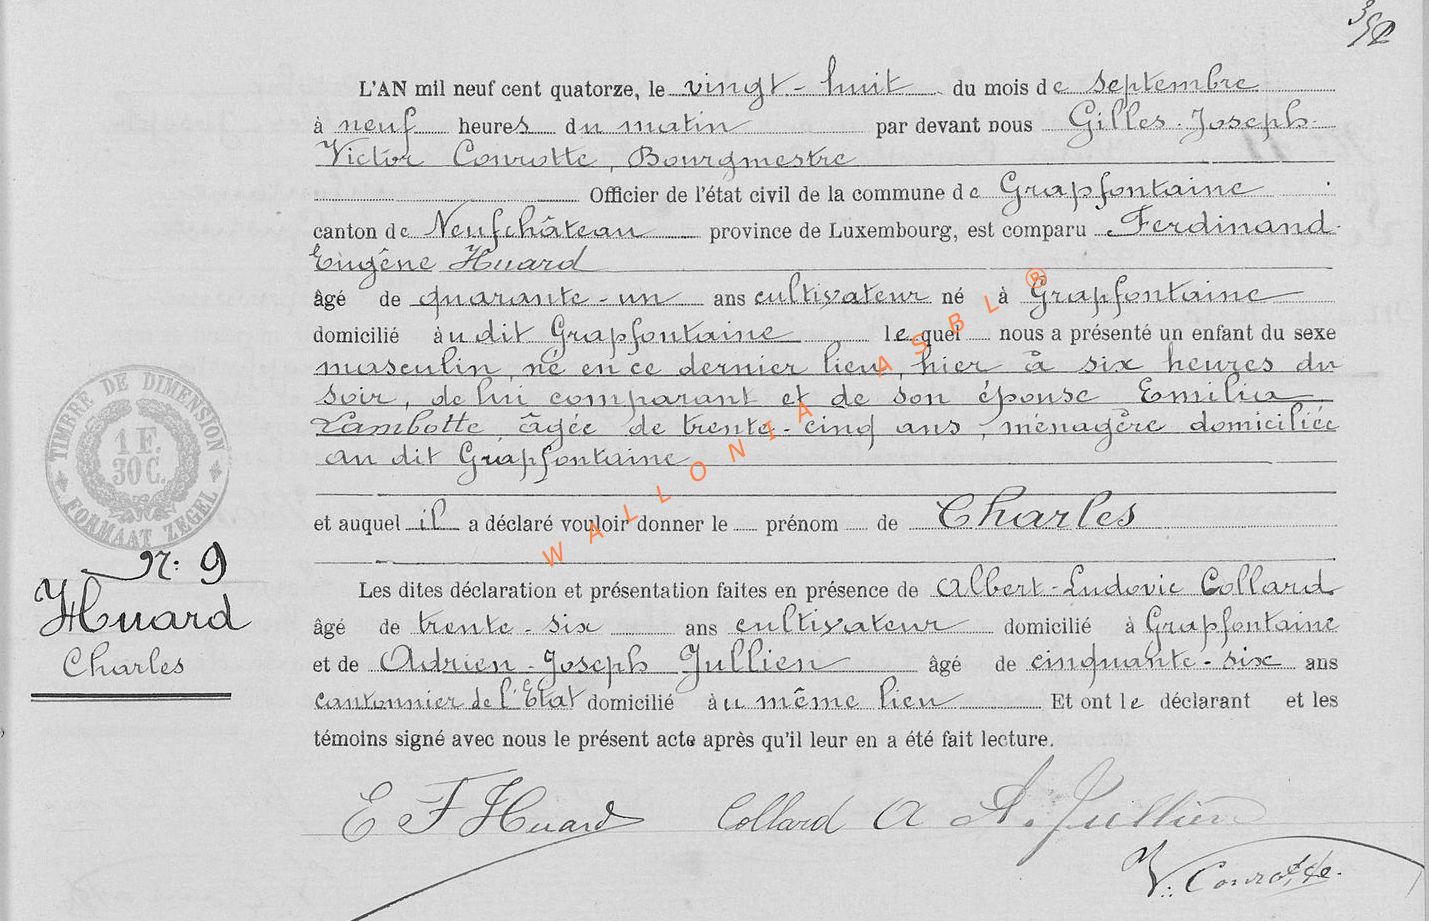 352
L'AN mil neuf cent quatorze, le vingt-huit du mois de septembre
à neuf heures du matin par devant nous Gilles-Joseph-
Victor Conrotte, Bourgmestre
Officier de l'état civil de la commune de Grapfontaine
canton de Neufchâteau province de Luxembourg, est comparu Ferdinand-
Eugêne Huard
âgé de quarante-un ans cultivateur né à Grapfontaine
domicilié à u dit Grapfontaine lequel nous a présenté un enfant du sexe
masculin, né en ce dernier lieu, hier à six heures du
soir, de lui comparant et de son épouse Emilia
Lambotte, âgée de trente-cinq ans, ménagère domiciliée
au dit Grapfontaine
et auquel il a déclaré vouloir donner le prénom de Charles
Les dites déclaration et présentation faites en présence de Albert-Ludovic Collard
âgé de trente-six ans cultivateur domicilié à Grapfontaine
et de Adrien-Joseph Jullien âgé de cinquante-six ans
cantonnier de l'Etat domicilié àu même lieu Et ont le déclarant et les
témoins signé avec nous le présent acte après qu'il leur en a été fait lecture.
TIMBRE DE DIMENSION
1 F.
30 C.
FORMAAT ZEGEL
N: 9
Huard
Charles
E F Huard Collard A A. Jullien
V: Conrotte.
WALLONIA ASBL ®